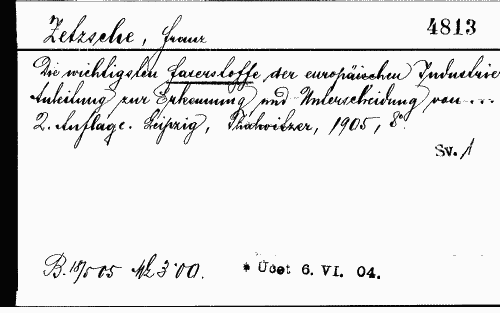 Zetzsche, Franz 4813
Die wichtigsten Faserstoffe der europäischen Industrie
Anleitung zur Erkennung und Unterscheidung von ...
2. Auflage. Leipzig, 1905, 8°.
Sv. 1
B. 3·00. * Účet 6. VI. 04.